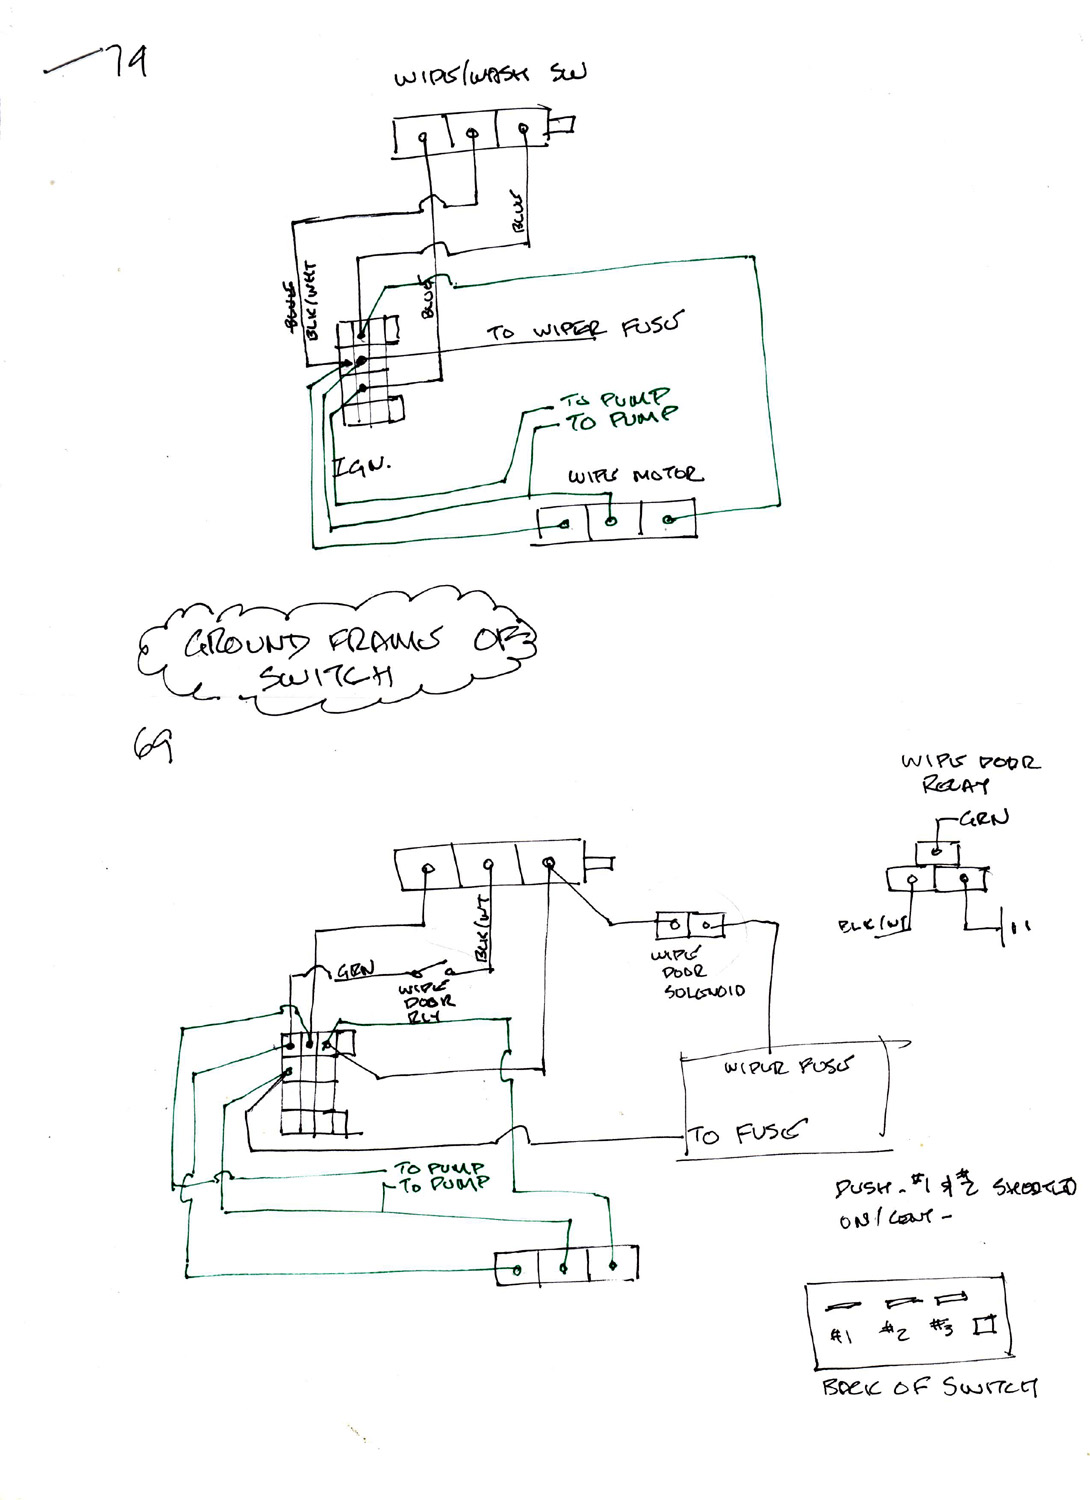 74
WIPE/WASH SW
BLUE
BLUE
BLK/WHT
BLUE
TO WIPER FUSE
TO PUMP
TO PUMP
IGN.
WIPE MOTOR
GROUND FRAME OF
SWITCH
69
WIPE DOOR
RELAY
GRN
BLK/WT
BLK/WT
GRN
WIPE
DOOR
RLY
WIPE
DOOR
SOLENOID
WIPER FUSE
TO FUSE
TO PUMP
TO PUMP
PUSH - #1 & #2 SHORTED
ON/CENT -
#1 #2 #3
BACK OF SWITCH